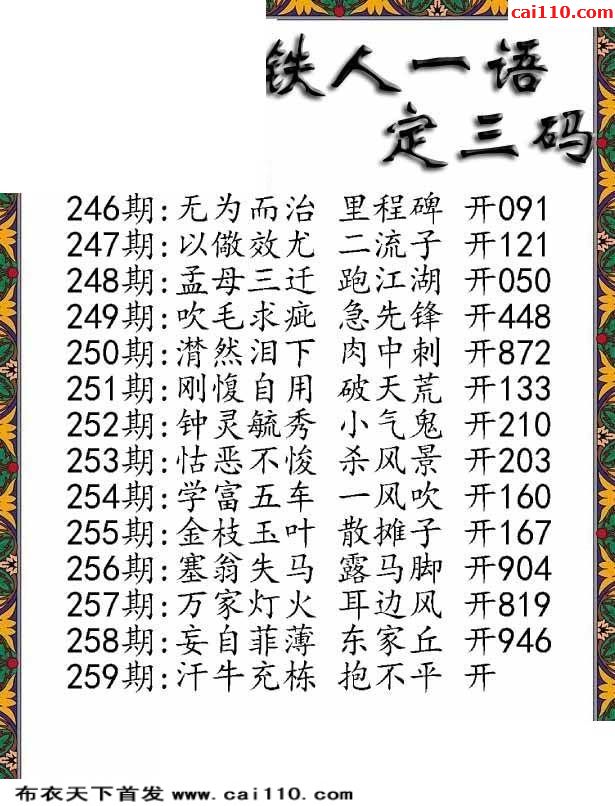 cai110.com
铁人一语
定三码
246期:无为而治 里程碑 开091
247期:以儆效尤 二流子 开121
248期:孟母三迁 跑江湖 开050
249期:吹毛求疵 急先锋 开448
250期:潸然泪下 肉中刺 开872
251期:刚愎自用 破天荒 开133
252期:钟灵毓秀 小气鬼 开210
253期:怙恶不悛 杀风景 开203
254期:学富五车 一风吹 开160
255期:金枝玉叶 散摊子 开167
256期:塞翁失马 露马脚 开904
257期:万家灯火 耳边风 开819
258期:妄自菲薄 东家丘 开946
259期:汗牛充栋 抱不平 开
布衣天下首发 www.cai110.com